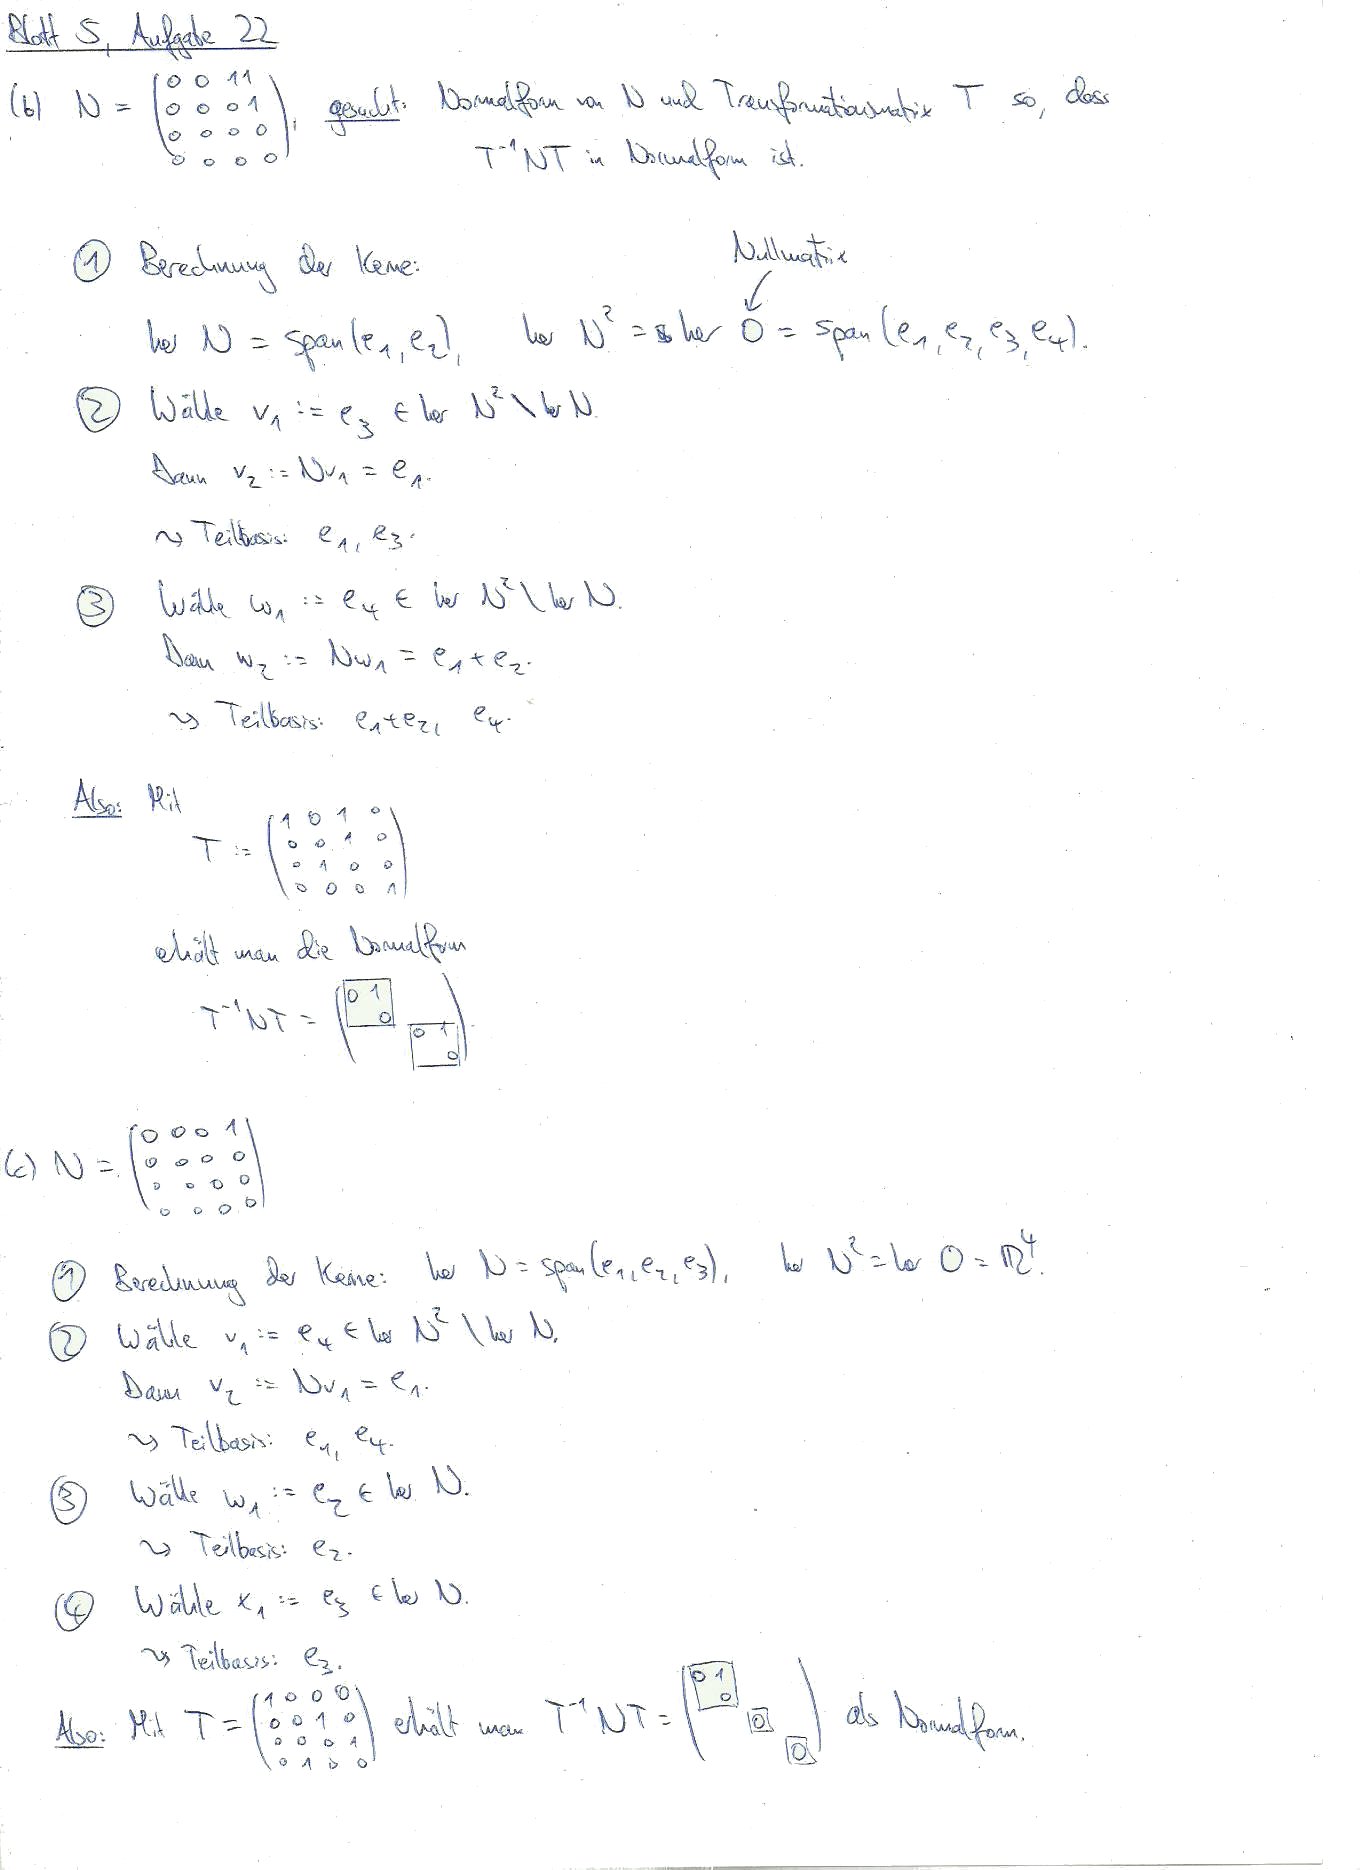 Blatt 5, Aufgabe 22
(b) N = (0 0 1 1
0 0 0 1
0 0 0 0
0 0 0 0), gesucht: Normalform von N und Transformationsmatrix T so, dass
T⁻¹NT in Normalform ist.
① Berechnung der Kerne:
Nullmatrix
ker N = span(e₁, e₂), ker N² = ker 0 = span(e₁, e₂, e₃, e₄).
② Wähle v₁ := e₃ ∈ ker N² \ ker N.
Dann v₂ := Nv₁ = e₁.
⇝ Teilbasis: e₁, e₃.
③ Wähle w₁ := e₄ ∈ ker N² \ ker N.
Dann w₂ := Nw₁ = e₁ + e₂.
⇝ Teilbasis: e₁+e₂, e₄.
Also: Mit
T := (1 0 1 0
0 0 1 0
0 1 0 0
0 0 0 1)
erhält man die Normalform
T⁻¹NT = (0 1
0
0 1
0)
(c) N = (0 0 0 1
0 0 0 0
0 0 0 0
0 0 0 0)
① Berechnung der Kerne: ker N = span(e₁, e₂, e₃), ker N² = ker 0 = ℝ⁴.
② Wähle v₁ := e₄ ∈ ker N² \ ker N.
Dann v₂ := Nv₁ = e₁.
⇝ Teilbasis: e₁, e₄.
③ Wähle w₁ := e₂ ∈ ker N.
⇝ Teilbasis: e₂.
④ Wähle x₁ := e₃ ∈ ker N.
⇝ Teilbasis: e₃.
Also: Mit T = (1 0 0 0
0 0 1 0
0 0 0 1
0 1 0 0) erhält man T⁻¹NT = (0 1
0
0
0) als Normalform.